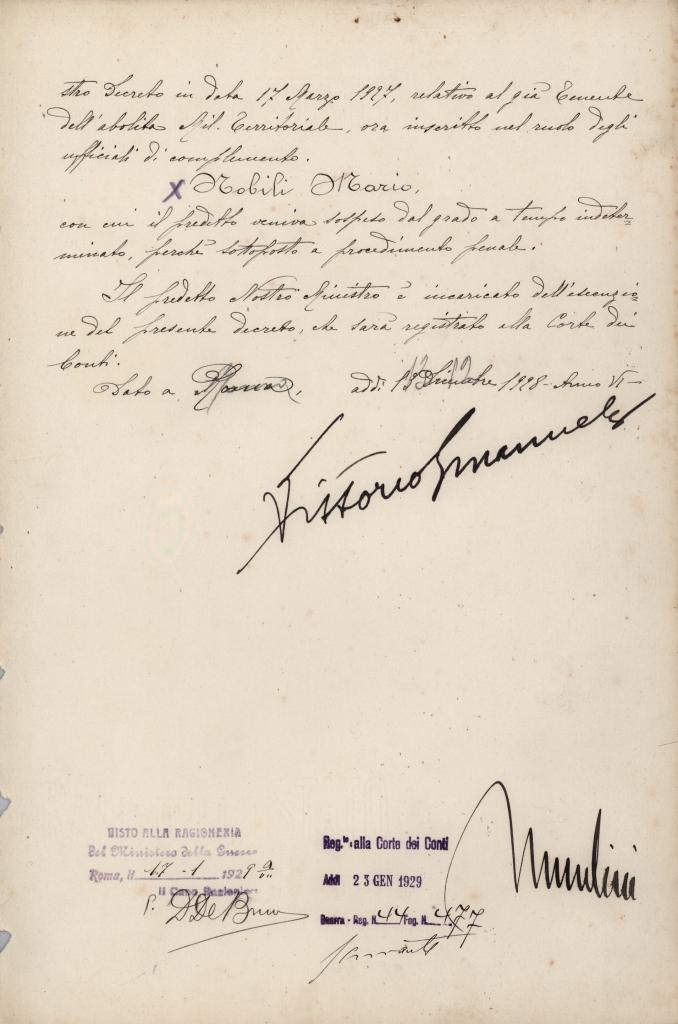 stro Decreto in data 17 Marzo 1927, relativo al già Tenente
dell'abolita Mil. Territoriale, ora inscritto nel ruolo degli
ufficiali di complemento.
X Nobili Mario,
con cui il predetto veniva sospeso dal grado a tempo indeter=
minato, perchè sottoposto a procedimento penale.
Il predetto Nostro Ministro è incaricato dell'esecuzio=
ne del presente decreto, che sarà registrato alla Corte dei
Conti.
Dato a Roma, addì 13 Dicembre 1928 - Anno VI -
Vittorio Emanuele
VISTO ALLA RAGIONERIA
del Ministero della Guerra
Roma, li 17 - 1 1929
Il Capo Ragioniere
P. De Bruno
Reg.to alla Corte dei Conti
Addì 23 GEN 1929
Guerra - Reg. N. 44 Fog. N. 477
Mussolini